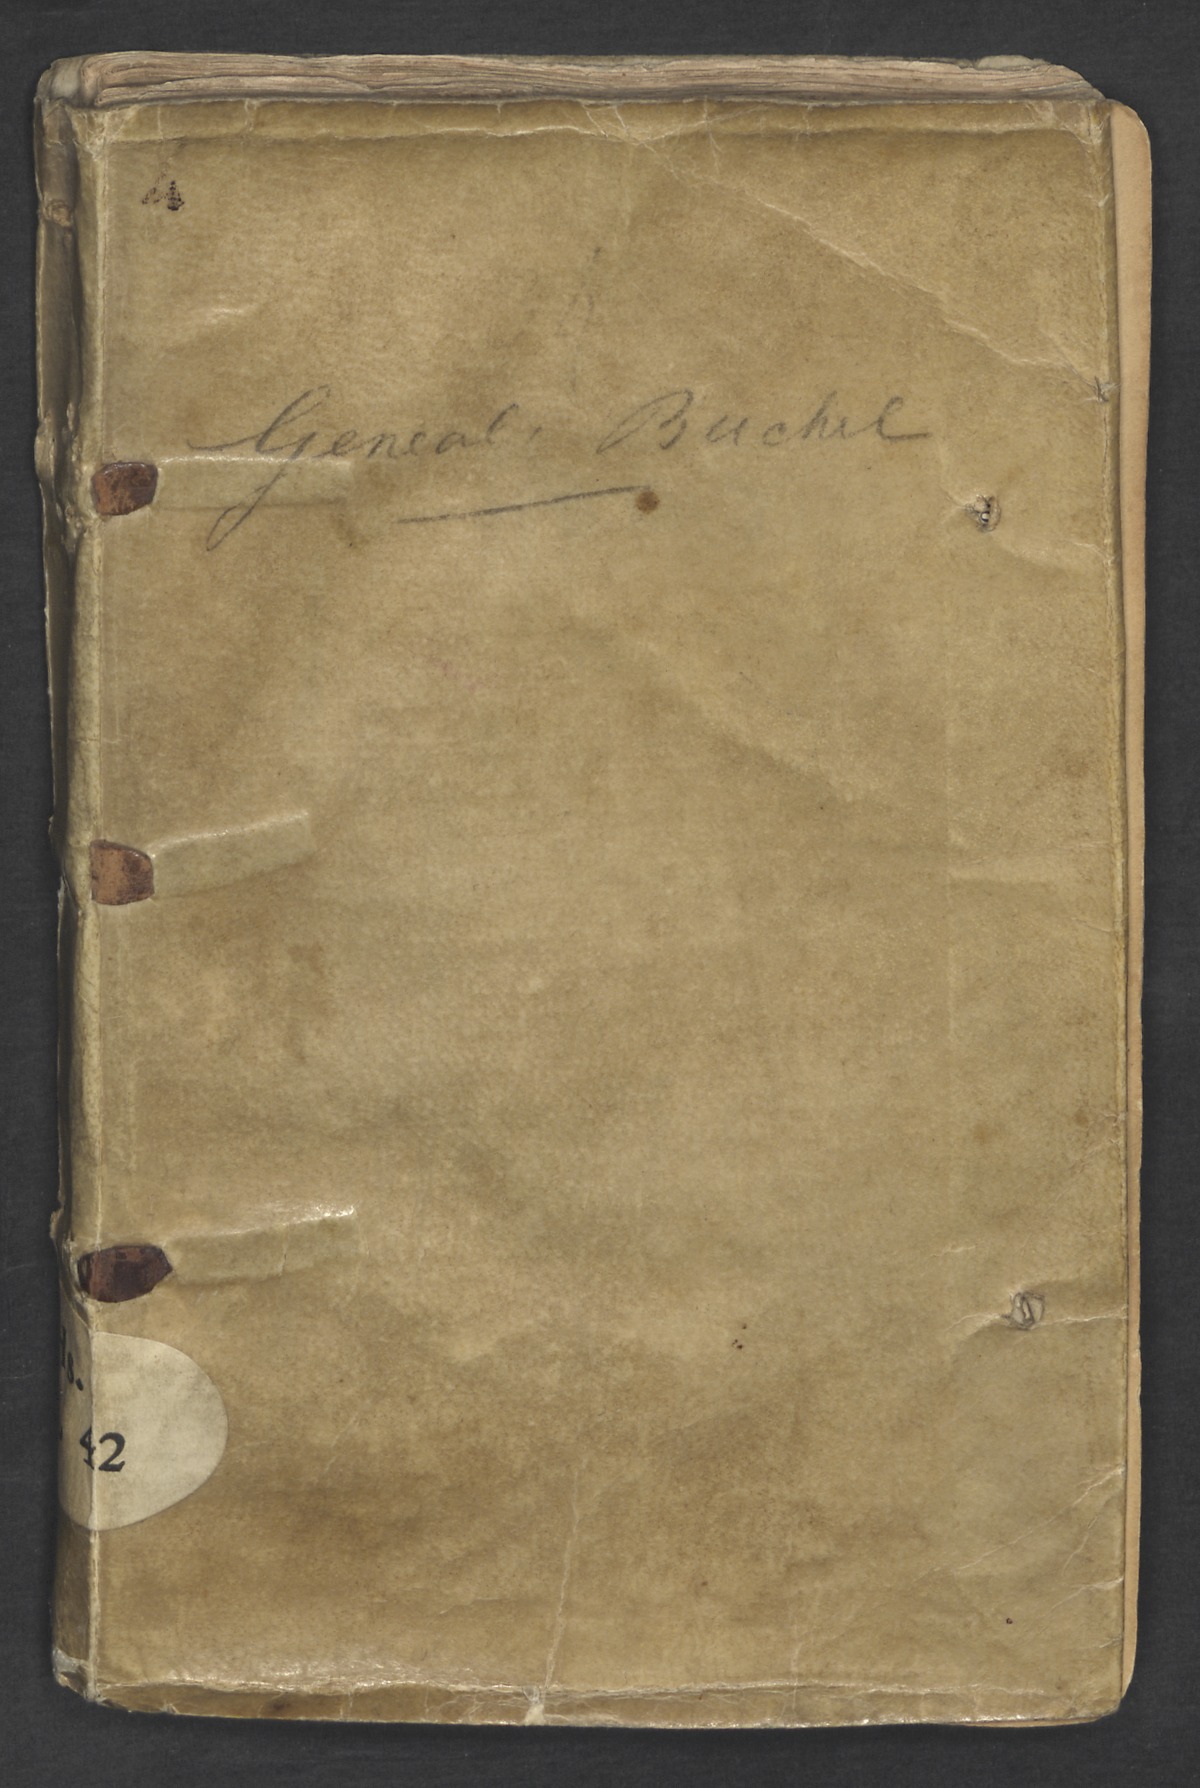 Geneal. Buchel
42